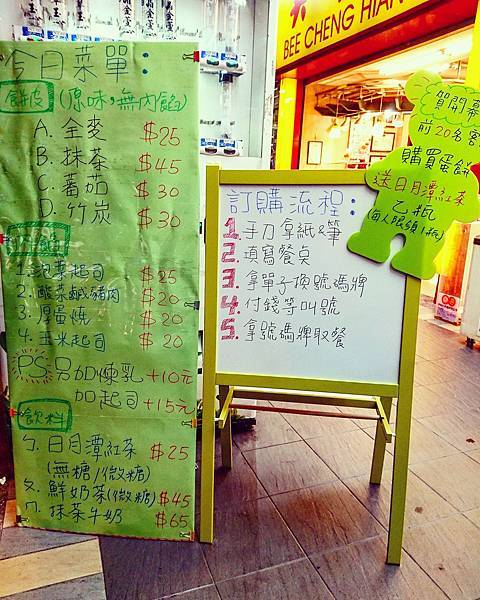 今日菜單：
餅皮(原味，無內餡)
A. 全麥 $25
B. 抹茶 $45
C. 蕃茄 $30
D. 竹炭 $30
1. 泡菜起司 $25
2. 酸菜鹹豬肉 $20
3. 厚蛋燒 $20
4. 玉米起司 $20
PS:另加煉乳 +10元
加起司 +15元
飲料
ㄅ. 日月潭紅茶 $25
(無糖/微糖)
ㄆ. 鮮奶茶(微糖) $45
ㄇ. 抹茶牛奶 $65
訂購流程：
1. 手刀拿紙&筆
2. 填寫餐桌
3. 拿單子換號碼牌
4. 付錢等叫號
5. 拿號碼牌取餐
BEE CHENG HIAN
賀開幕
前20名客
購買蛋餅
送日月潭紅茶
乙瓶
(每人限領1瓶)